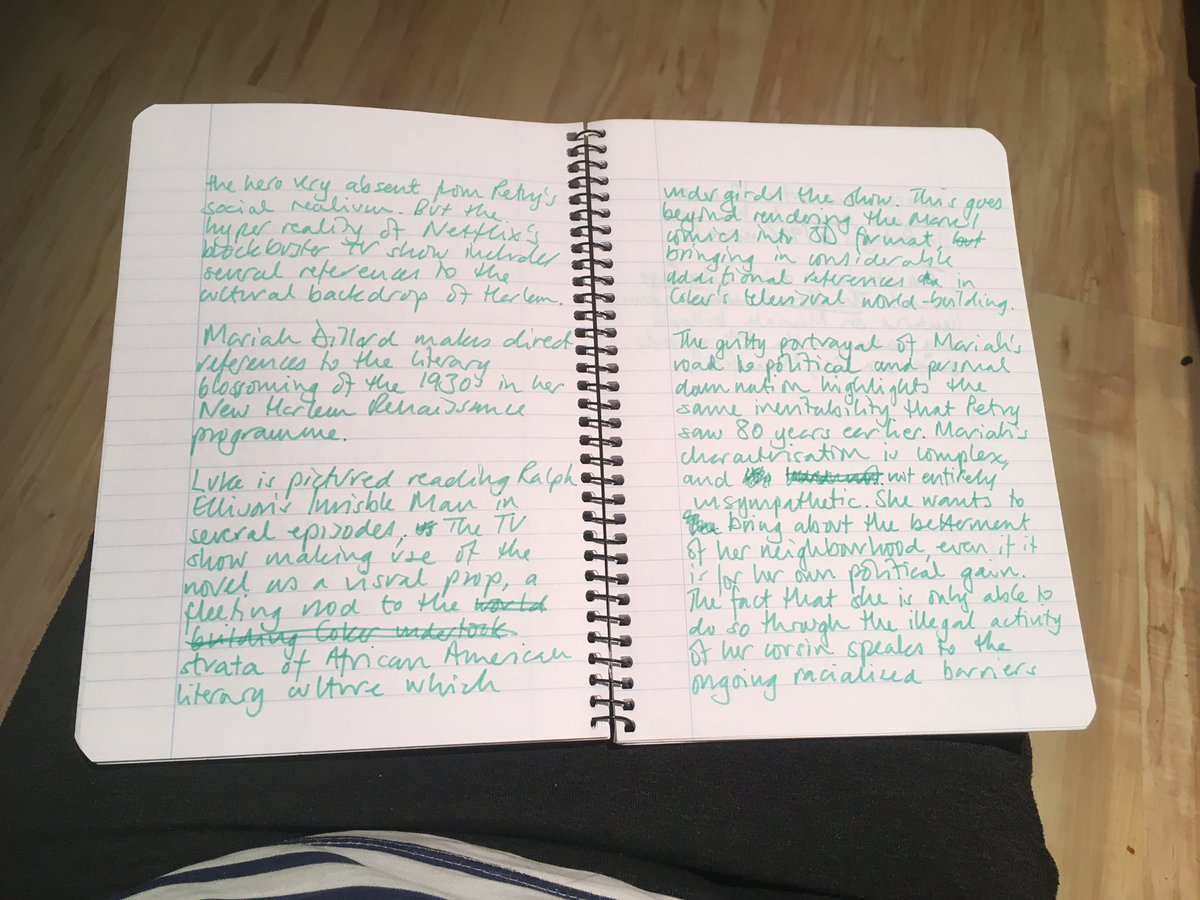 the hero very absent from Petry's
social realism. But the
hyper reality of Netflix's
blockbuster TV show includes
several references to the
cultural backdrop of Harlem.
Mariah Dillard makes direct
references to the literary
blossoming of the 1930s in her
New Harlem Renaissance
programme.
Luke is pictured reading Ralph
Ellison's Invisible Man in
several episodes, The TV
show making use of the
novel as a visual prop, a
fleeting nod to the world
building Coker undertook
strata of African American
literary culture which
undergirds the show. This goes
beyond rendering the Marvel
comics into 3D format, but
bringing in considerable
additional references in
Coker's televisual world-building.
The guilty portrayal of Mariah's
road to political and personal
damnation highlights the
same inevitability that Petry
saw 80 years earlier. Mariah's
characterisation is complex,
and not entirely
unsympathetic. She wants to
bring about the betterment
of her neighbourhood, even if it
is for her own political gain.
The fact that she is only able to
do so through the illegal activity
of her cousin speaks to the
ongoing racialised barriers